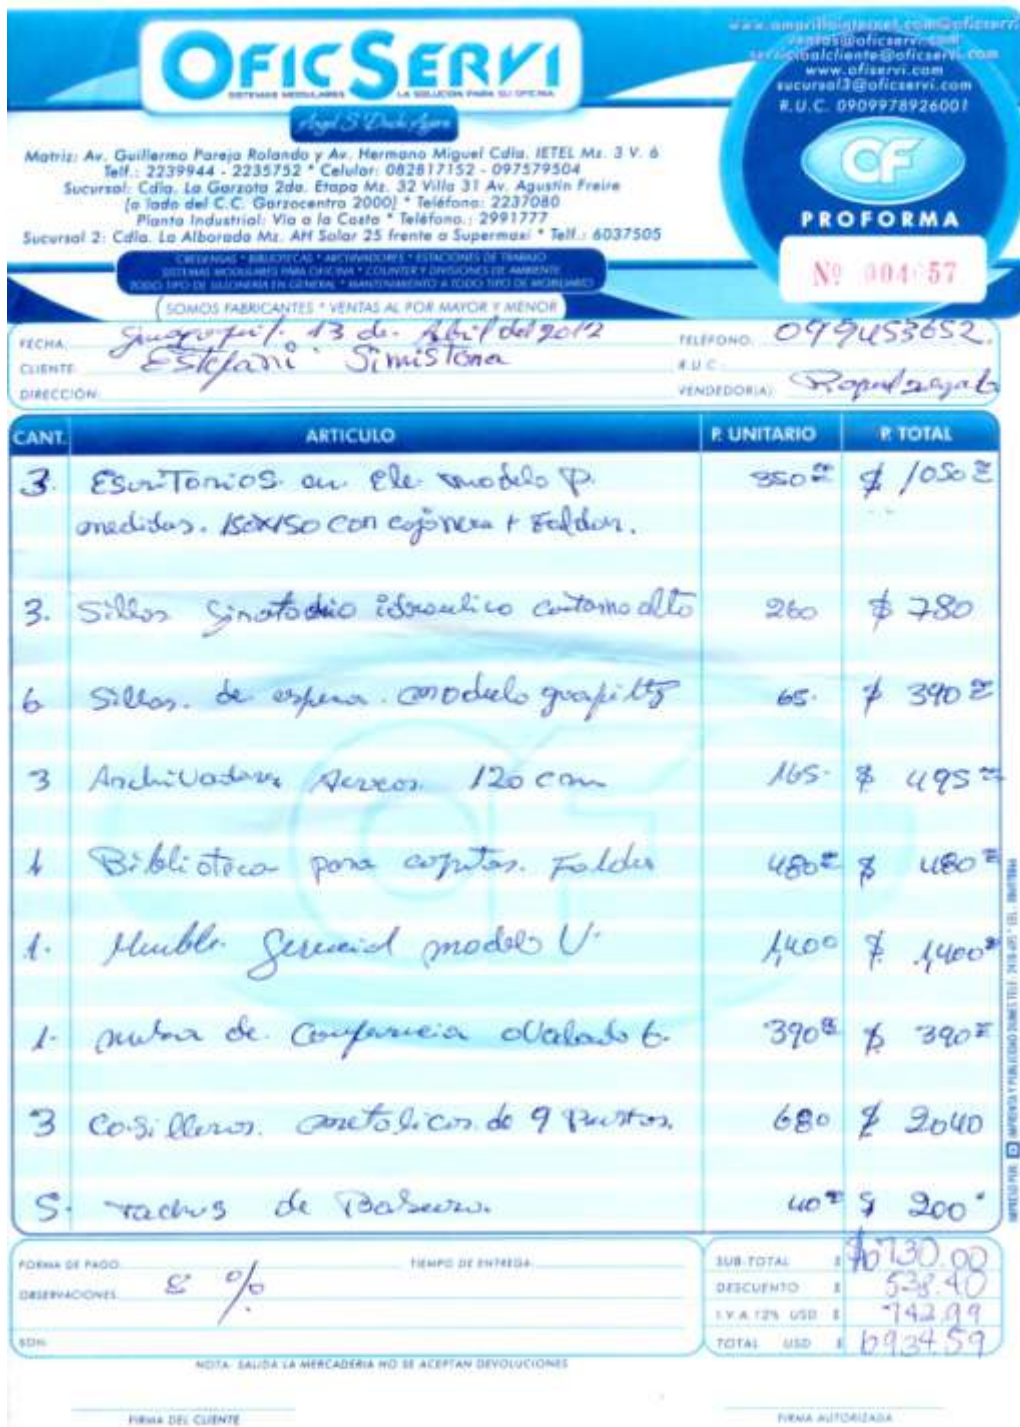 OFICSERVI
SISTEMAS MODULARES LA SOLUCION PARA SU OFICINA
www.amarillainternet.com/oficservi
ventas@oficservi.com
servicioalcliente@oficservi.com
www.ofiservi.com
sucursal3@oficservi.com
R.U.C. 0909978926001
Matriz: Av. Guillermo Pareja Rolando y Av. Hermano Miguel Cdla. IETEL Mz. 3 V. 6
Telf.: 2239944 - 2235752 * Celular: 082817152 - 097579504
Sucursal: Cdla. La Garzota 2da. Etapa Mz. 32 Villa 31 Av. Agustín Freire
(a lado del C.C. Garzocentro 2000) * Teléfono: 2237080
Planta Industrial: Via a la Costa * Teléfono.: 2991777
Sucursal 2: Cdla. La Alborada Mz. AH Solar 25 frente a Supermaxi * Telf.: 6037505
CF
PROFORMA
Nº 004
57
CREDENSAS * BIBLIOTECAS * ARCHIVADORES * ESTACIONES DE TRABAJO
SISTEMAS MODULARES PARA OFICINA * COUNTER Y DIVISIONES DE AMBIENTE
TODO TIPO DE SILLONERIA EN GENERAL * MANTENIMIENTO A TODO TIPO DE MOBILIARIO
SOMOS FABRICANTES * VENTAS AL POR MAYOR Y MENOR
FECHA: Guayaquil. 13 de. Abril del 2012 TELEFONO: 099453652.
CLIENTE: Estefani Simistona R.U.C.:
DIRECCIÓN: VENDEDOR(A):
CANT. ARTICULO P. UNITARIO P. TOTAL
3. Escritorios en Ele modelo P. 350 $ 1050
medidas. 150X150 con cajonera + Faldon.
3. Sillas idraulico alto 260 $ 780
6 Sillas. de espera. modelo 65. $ 390
3 Archivadores Aereos 120 cm 165. $ 495
1 Biblioteca para Folder 480 $ 480
1. Mueble Gerencial modelo U. 1,400 $ 1,400
1. de 390 $ 390
3 Casilleros metalicos de 9 Puestos. 680 $ 2040
5. tachos de 40 $ 200
FORMA DE PAGO: TIEMPO DE ENTREGA: SUB-TOTAL $
730.00
OBSERVACIONES: 8 % DESCUENTO $ 538.40
I.V.A 12% USD $ 742.99
SON: TOTAL USD $ 6934.59
NOTA: SALIDA LA MERCADERIA NO SE ACEPTAN DEVOLUCIONES
FIRMA DEL CLIENTE FIRMA AUTORIZADA